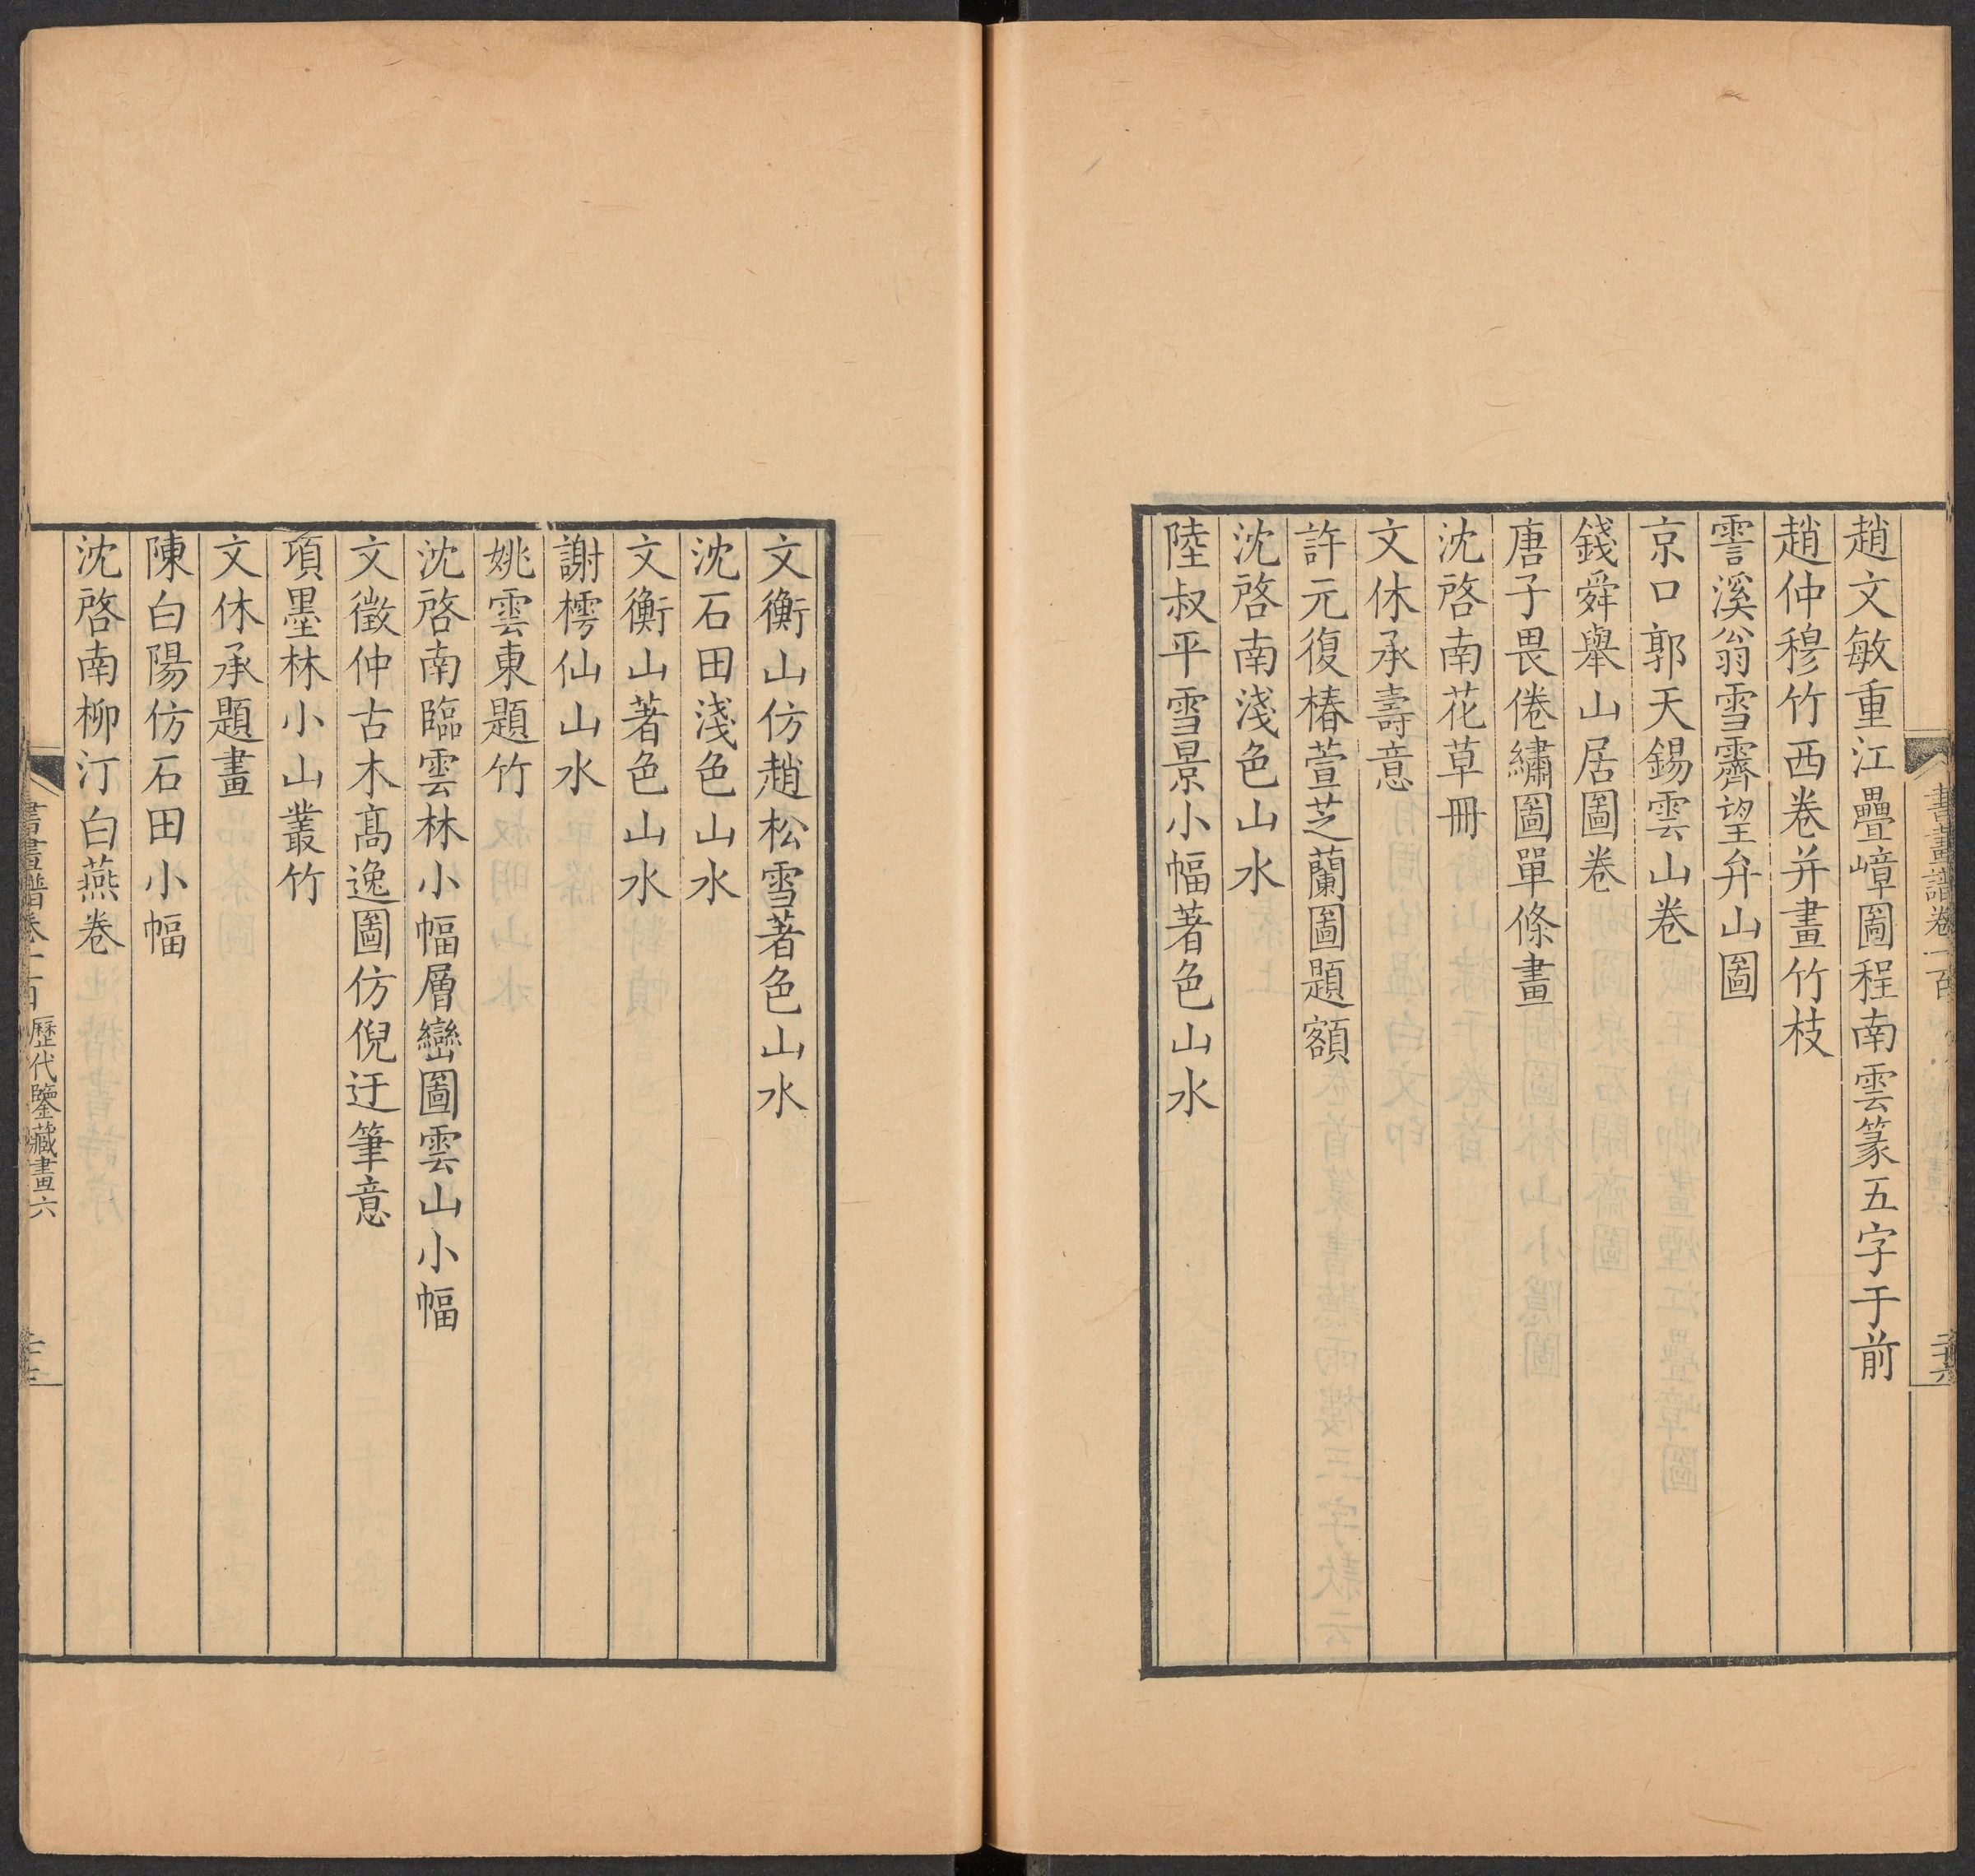 書畫譜卷一百
趙文敏重江疊嶂圖程南雲篆五字于前
趙仲穆竹西卷并畫竹枝
霅溪翁雪霽望弁山圖
京口郭天錫雲山卷
錢舜舉山居圖卷
唐子畏倦繡圖單條畫
沈啓南花草冊
文休承壽意
許元復椿萱芝蘭圖題額
沈啓南淺色山水
陸叔平雪景小幅著色山水
文衡山仿趙松雪著色山水
沈石田淺色山水
文衡山著色山水
謝樗仙山水
姚雲東題竹
沈啓南臨雲林小幅層巒圖雲山小幅
文徵仲古木髙逸圖仿倪迂筆意
項墨林小山叢竹
文休承題畫
陳白陽仿石田小幅
沈啓南柳汀白燕卷
書畫譜卷一百 歷代鑒藏畫六